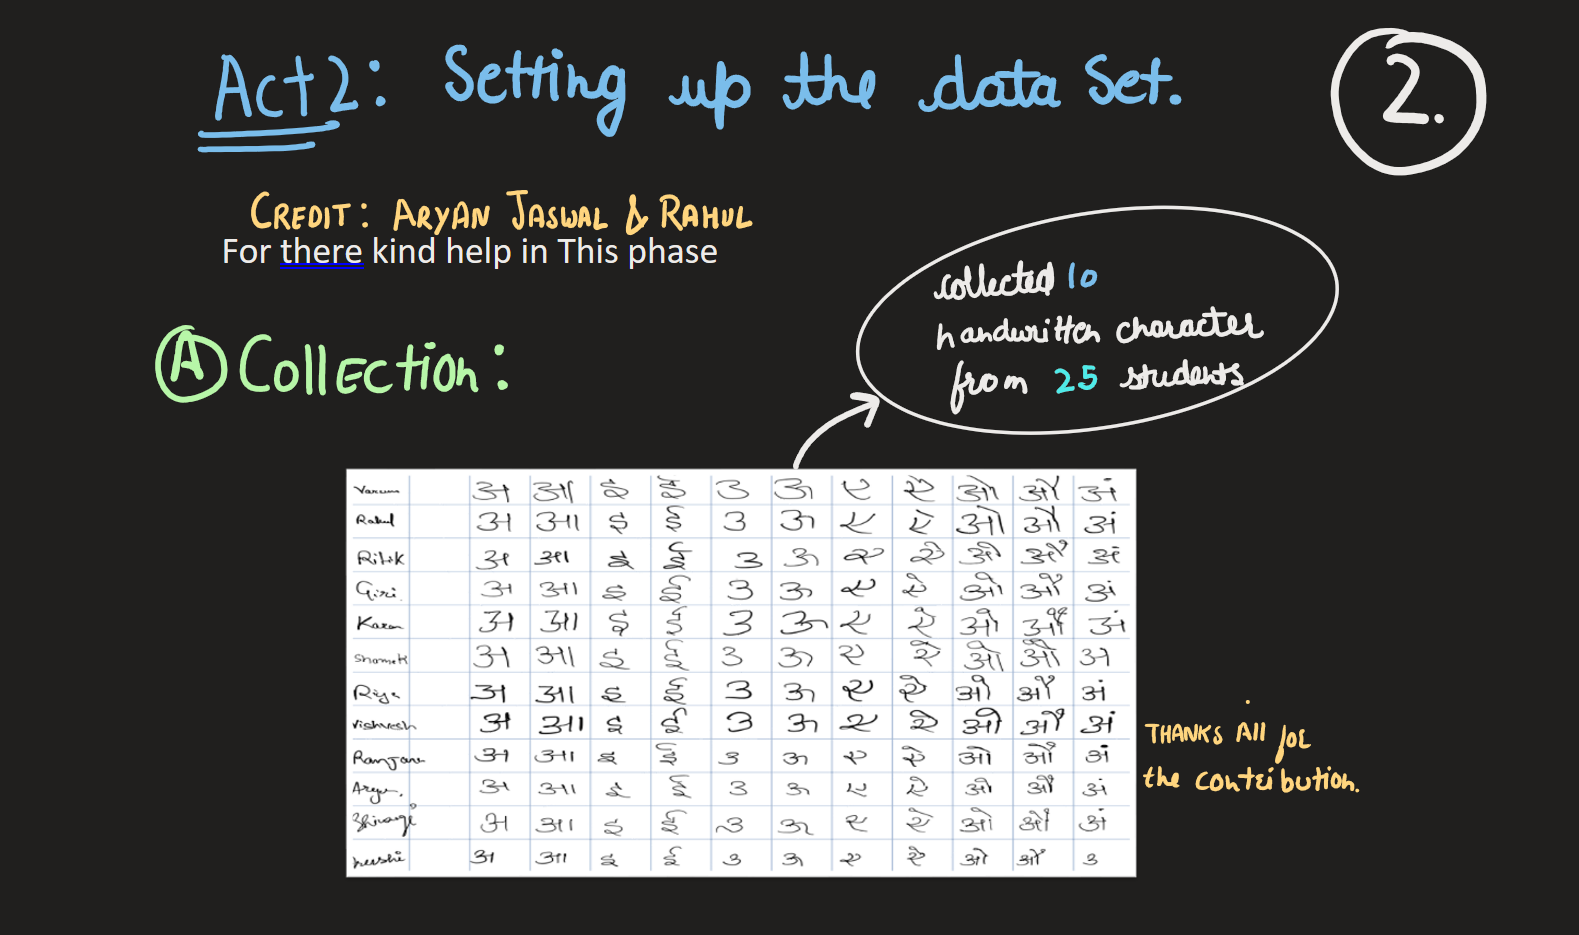 Act2: Setting up the data Set.
2.
CREDIT: ARYAN JASWAL & RAHUL
For there kind help in This phase
collected 10
handwritten character
from 25 students
A Collection:
Varun अ आ इ ई उ ऊ ए ऐ ओ औ अं
Rahul अ आ इ ई उ ऊ ए ऐ ओ औ अं
Ritik अ आ इ ई उ ऊ ए ऐ ओ औ अं
Giri. अ आ इ ई उ ऊ ए ऐ ओ औ अं
Karan अ आ इ ई उ ऊ ए ऐ ओ औ अं
अ आ इ ई उ ऊ ए ऐ ओ औ अ
Riya अ आ इ ई उ ऊ ए ऐ ओ औ अं
Vishvesh अ आ इ ई उ ऊ ए ऐ ओ औ अं
Ranjana अ आ इ ई उ ऊ ए ऐ ओ औ अं
अ आ इ ई उ ऊ ए ऐ ओ औ अं
अ आ इ ई उ ऊ ए ऐ ओ औ अं
अ आ इ ई उ ऊ ए ऐ ओ औ उ
THANKS All for
the contribution.